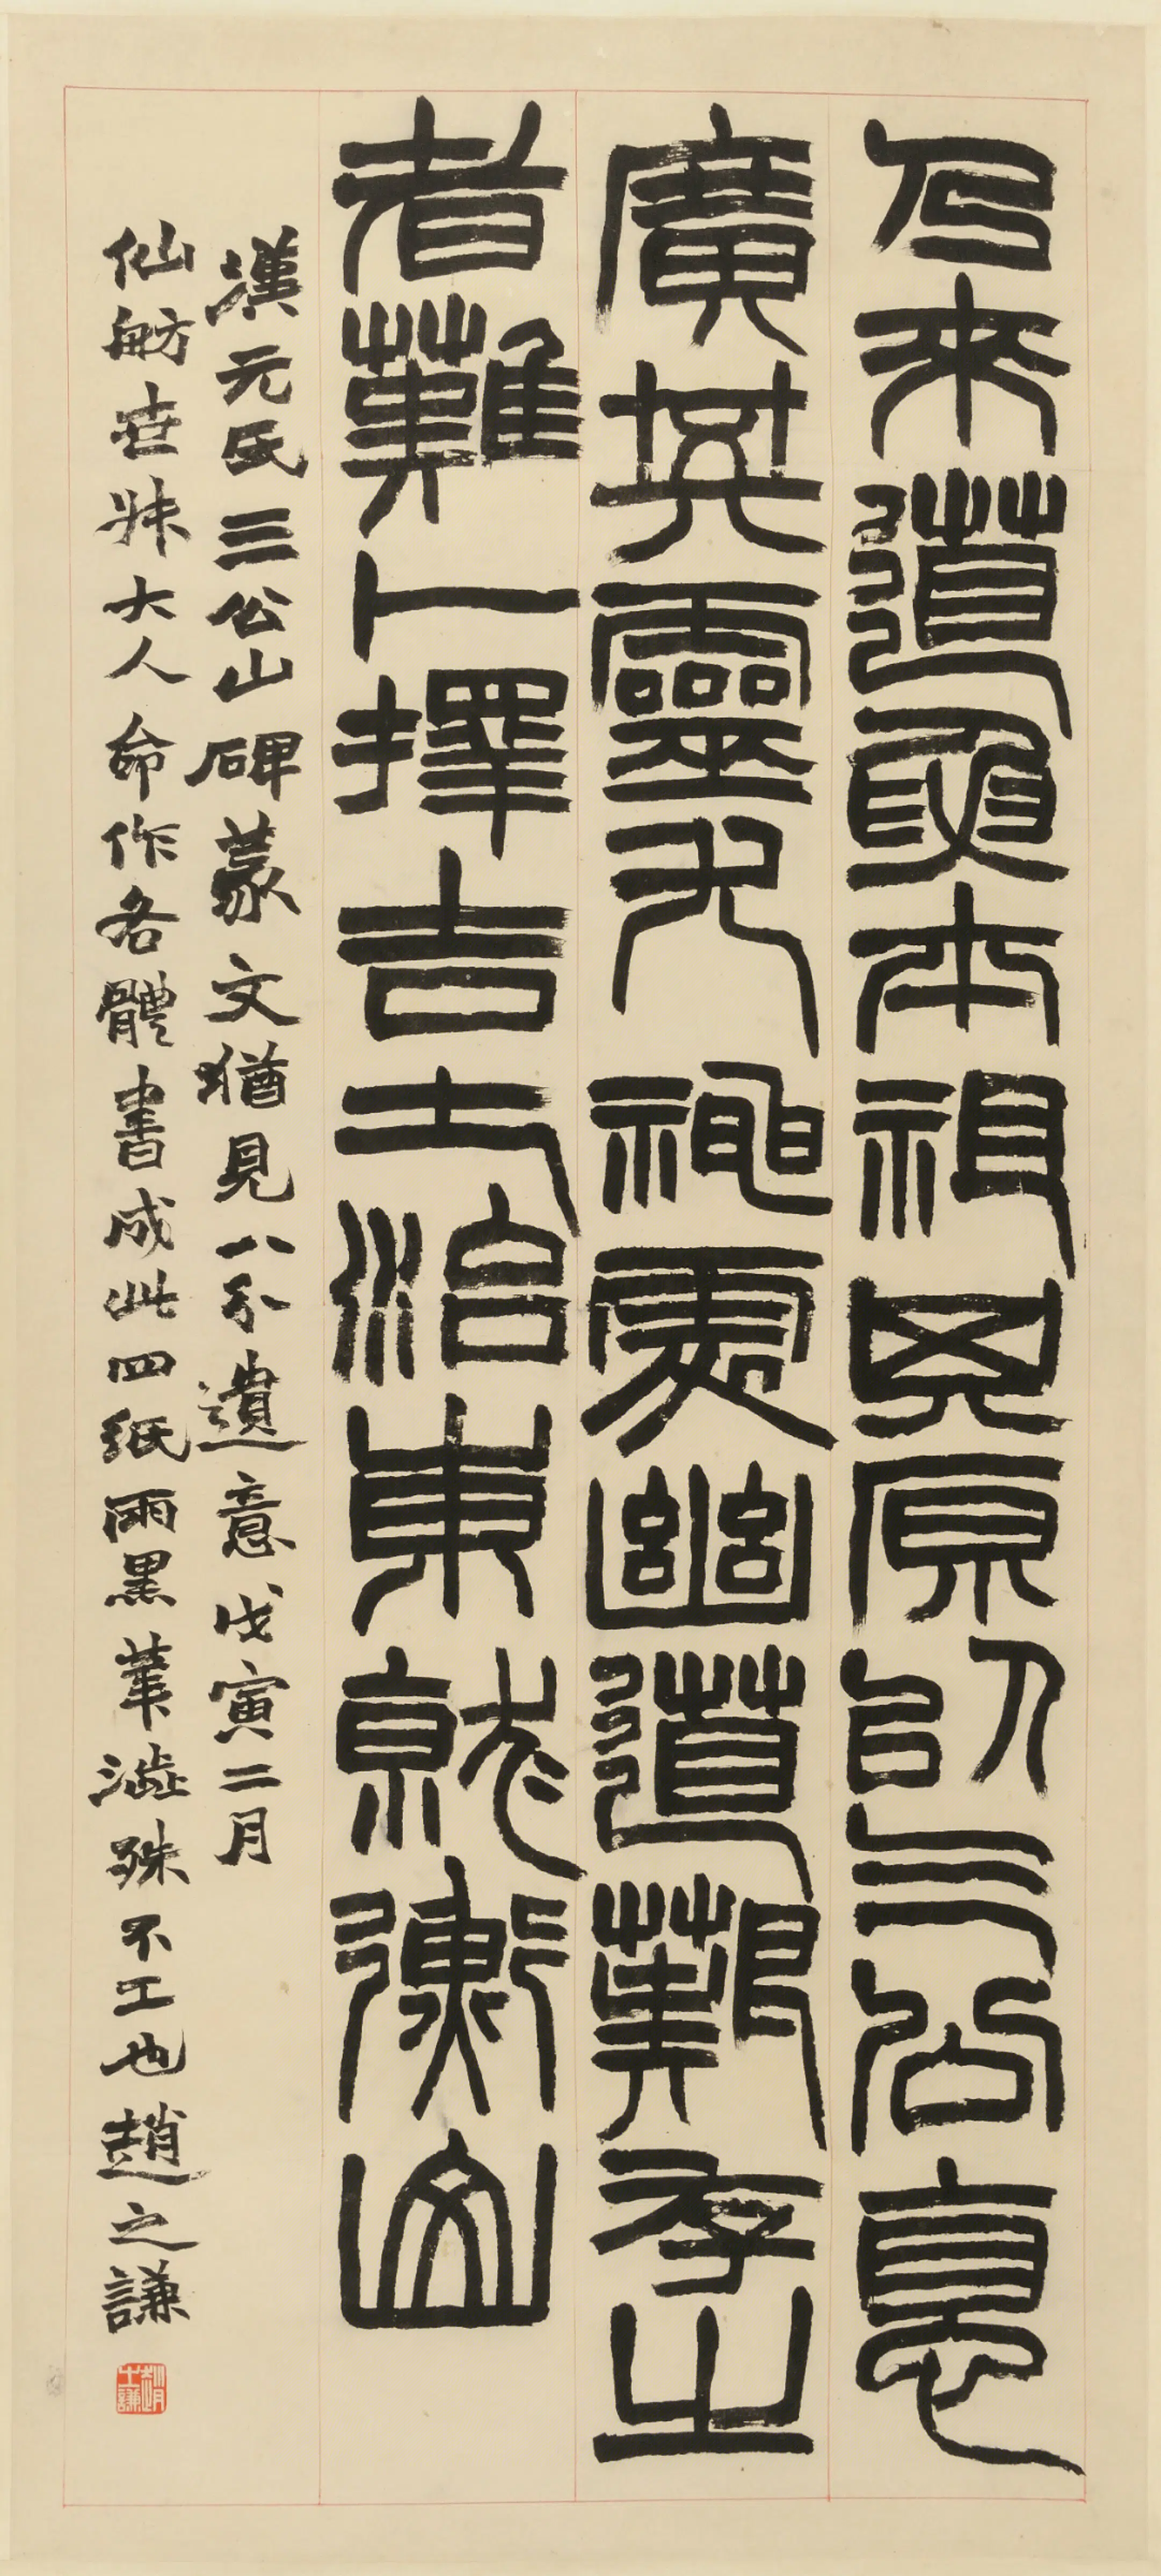 乃來道要本祖其原以三公德
廣其靈尤神處幽道艱存之
者難卜擇吉土治東就衡山
漢元氏三公山碑篆文猶見八分遺意戊寅二月
仙舫世叔大人命作各體書成此四紙雨黑筆澁殊不工也趙之謙
趙之謙